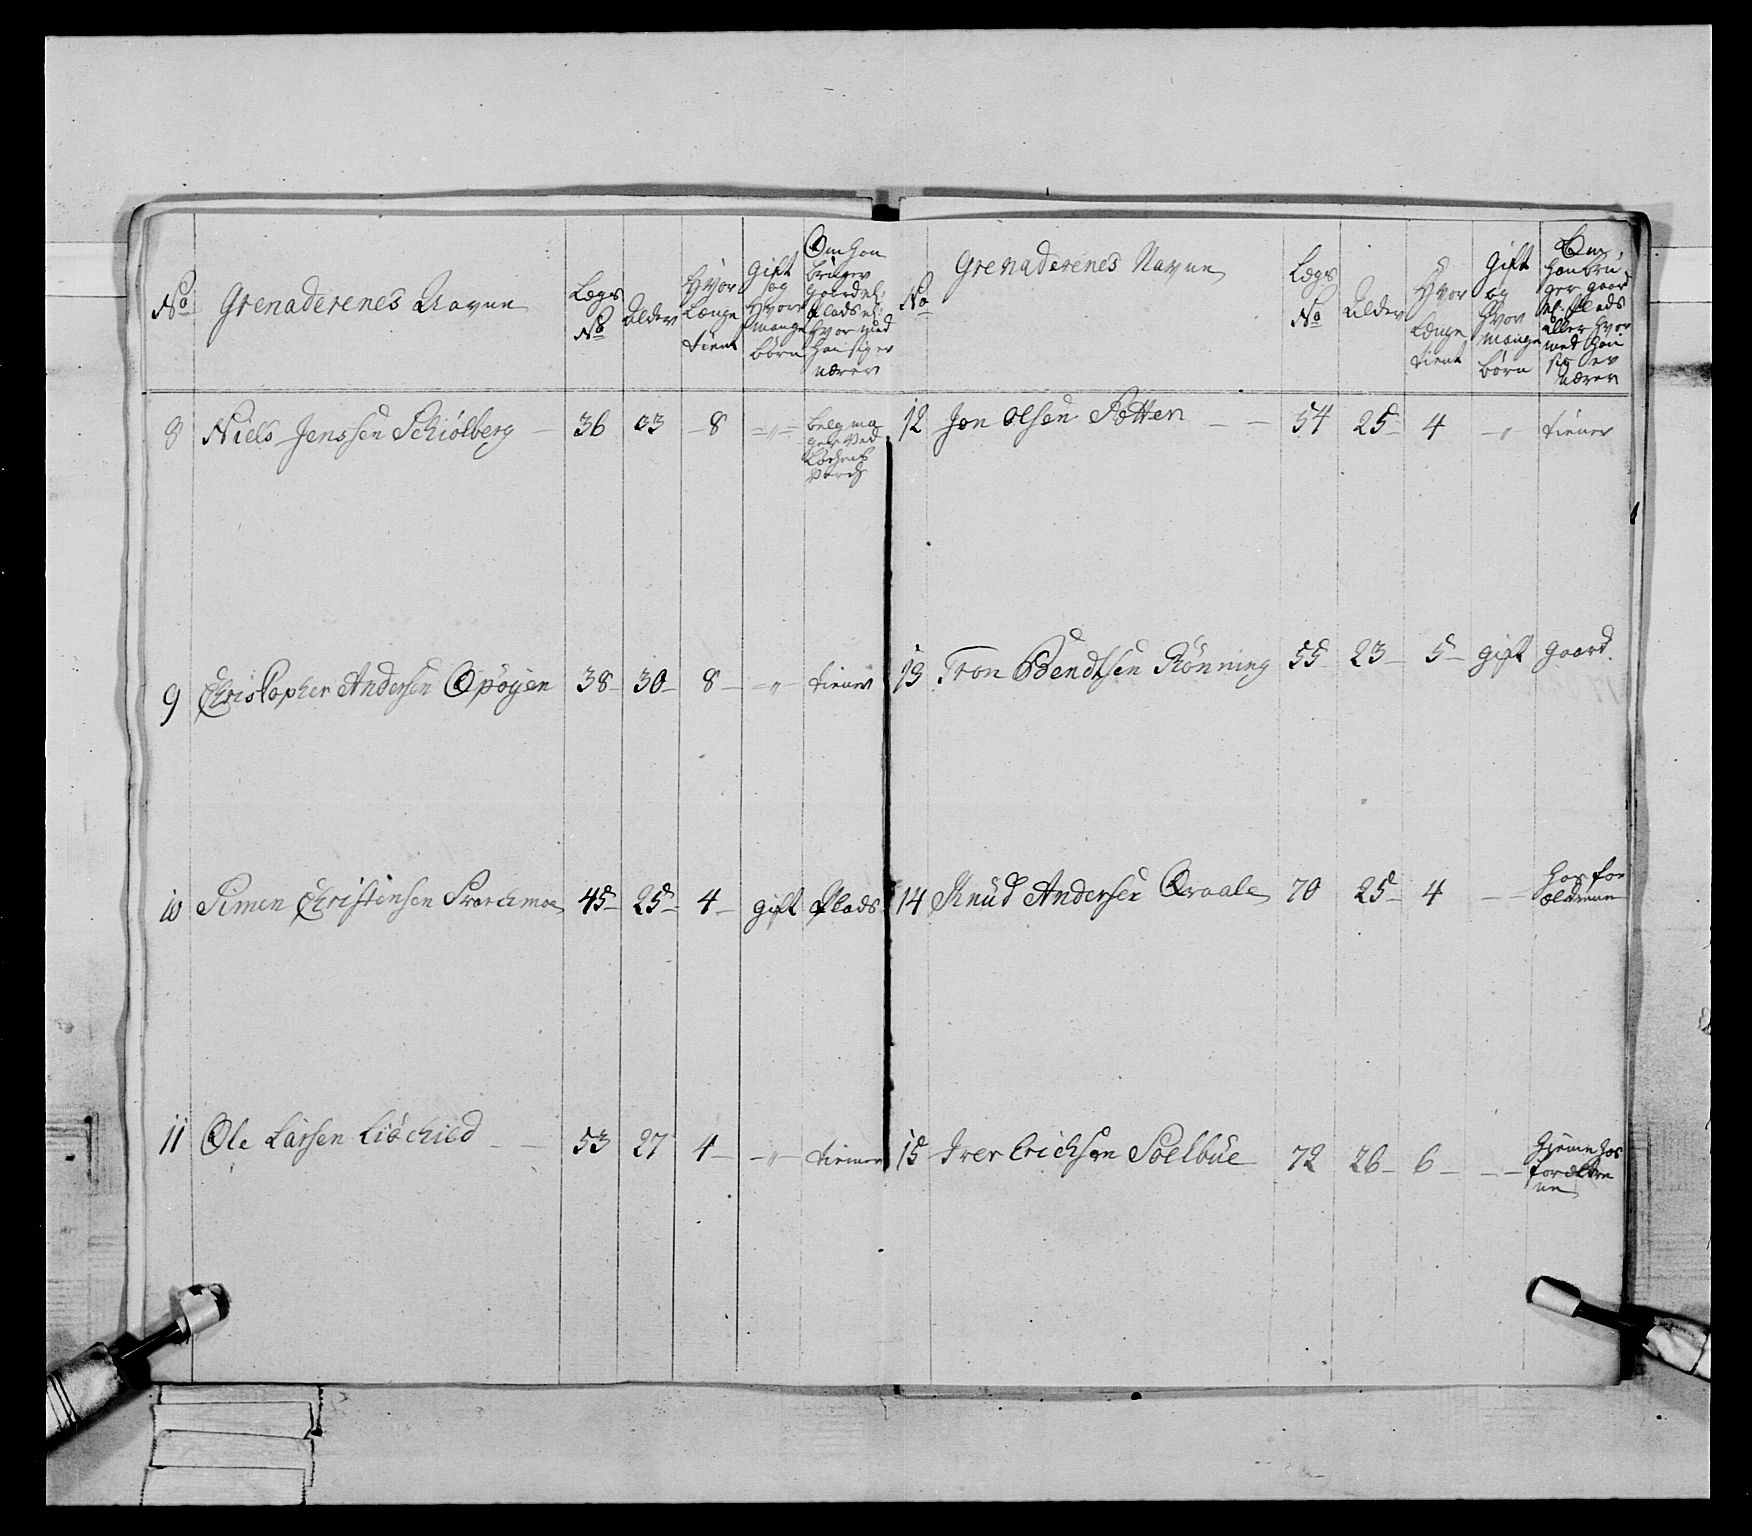 No
Grenaderenes Navne
Lægs
No
Alder
Hvor
Længe
tient
Gift
og
Hvor
mange
børn
Om han
bruger
gaard el:
Plads el:
hvor med
han siger
nærer
8 Niels Jenssen Schiølberg 36 33 8 belgma
geler ved
9 Christopher Andersen Opøyen 38 30 8 tiener
10 Simen Christensen 45 25 4 gift Plads
11 Ole Larsen 53 27 4 tiener
No
Grenaderenes Navne
Lægs
No
Alder
Hvor
Længe
tient
Gift
og
Hvor
mange
børn
Om
han bru
ger gaard
el: Plads
eller hvor
med han
sig er
nærer
12 Jon Olsen Sætten 54 25 4 tiener
13 Tron Bendtsen Rønning 55 23 5 gift gaard.
14 Knud Andersen Qvaale 70 25 4 hos for
ældrene
15 Iver Erichsen Soelbue 72 26 6 hiemme hos
forældre
ne